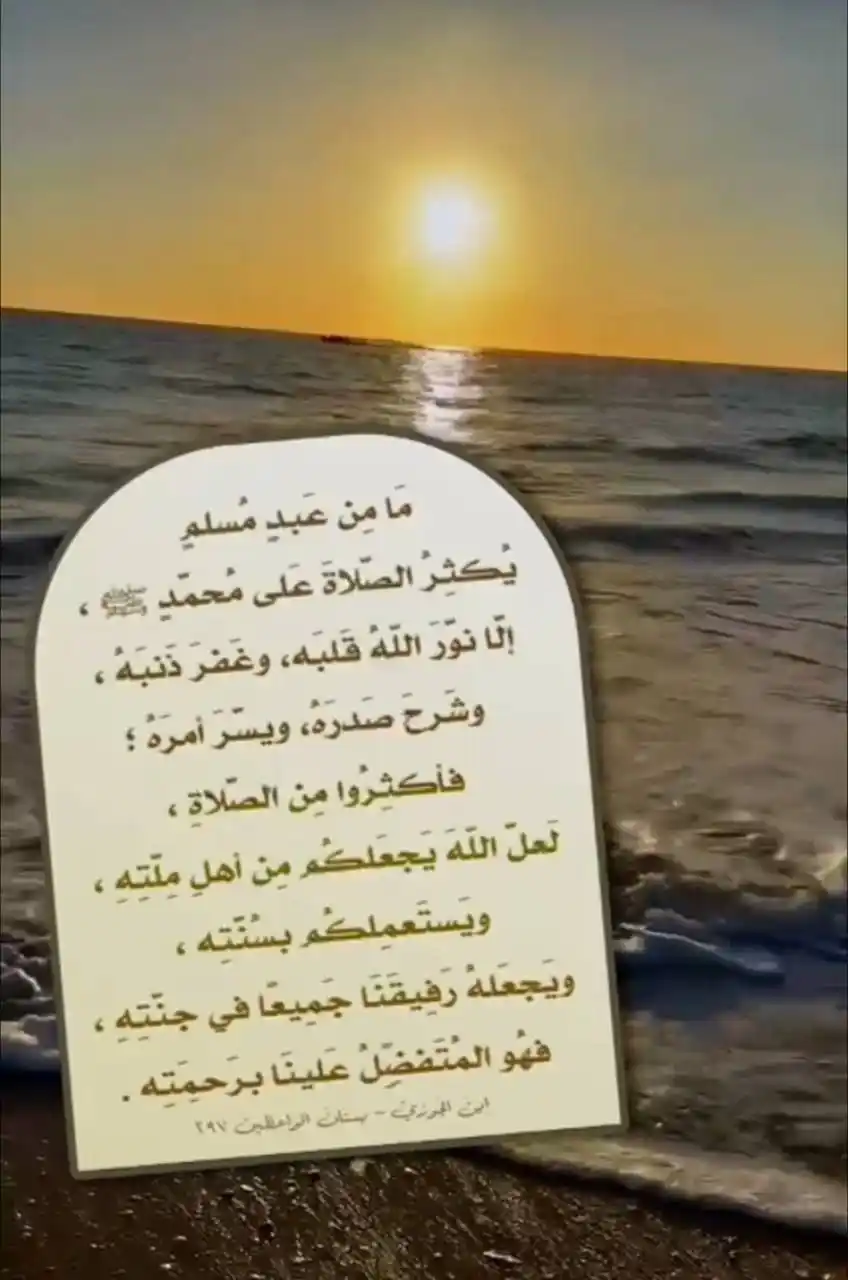 مَا مِن عَبدٍ مُسلمٍ
يُكثِرُ الصّلاةَ عَلى مُحمّدٍ ﷺ ،
إلّا نوّرَ اللّهُ قَلبَه، وغَفرَ ذَنبَهُ ،
وشَرحَ صَدرَهُ، ويسّرَ أمرَهُ ؛
فأكثِرُوا مِن الصّلاةِ ،
لَعلّ اللّهَ يَجعَلكُم مِن أهلِ مِلّتِهِ ،
ويَستَعمِلكُم بسُنّتِه ،
ويَجعَلهُ رَفِيقَنَا جَمِيعًا في جنّتِهِ ،
فهُو المُتَفضِّلُ عَلينَا برَحمَتِه .
ابن الجوزي – بستان الواعظين ٢٩٧